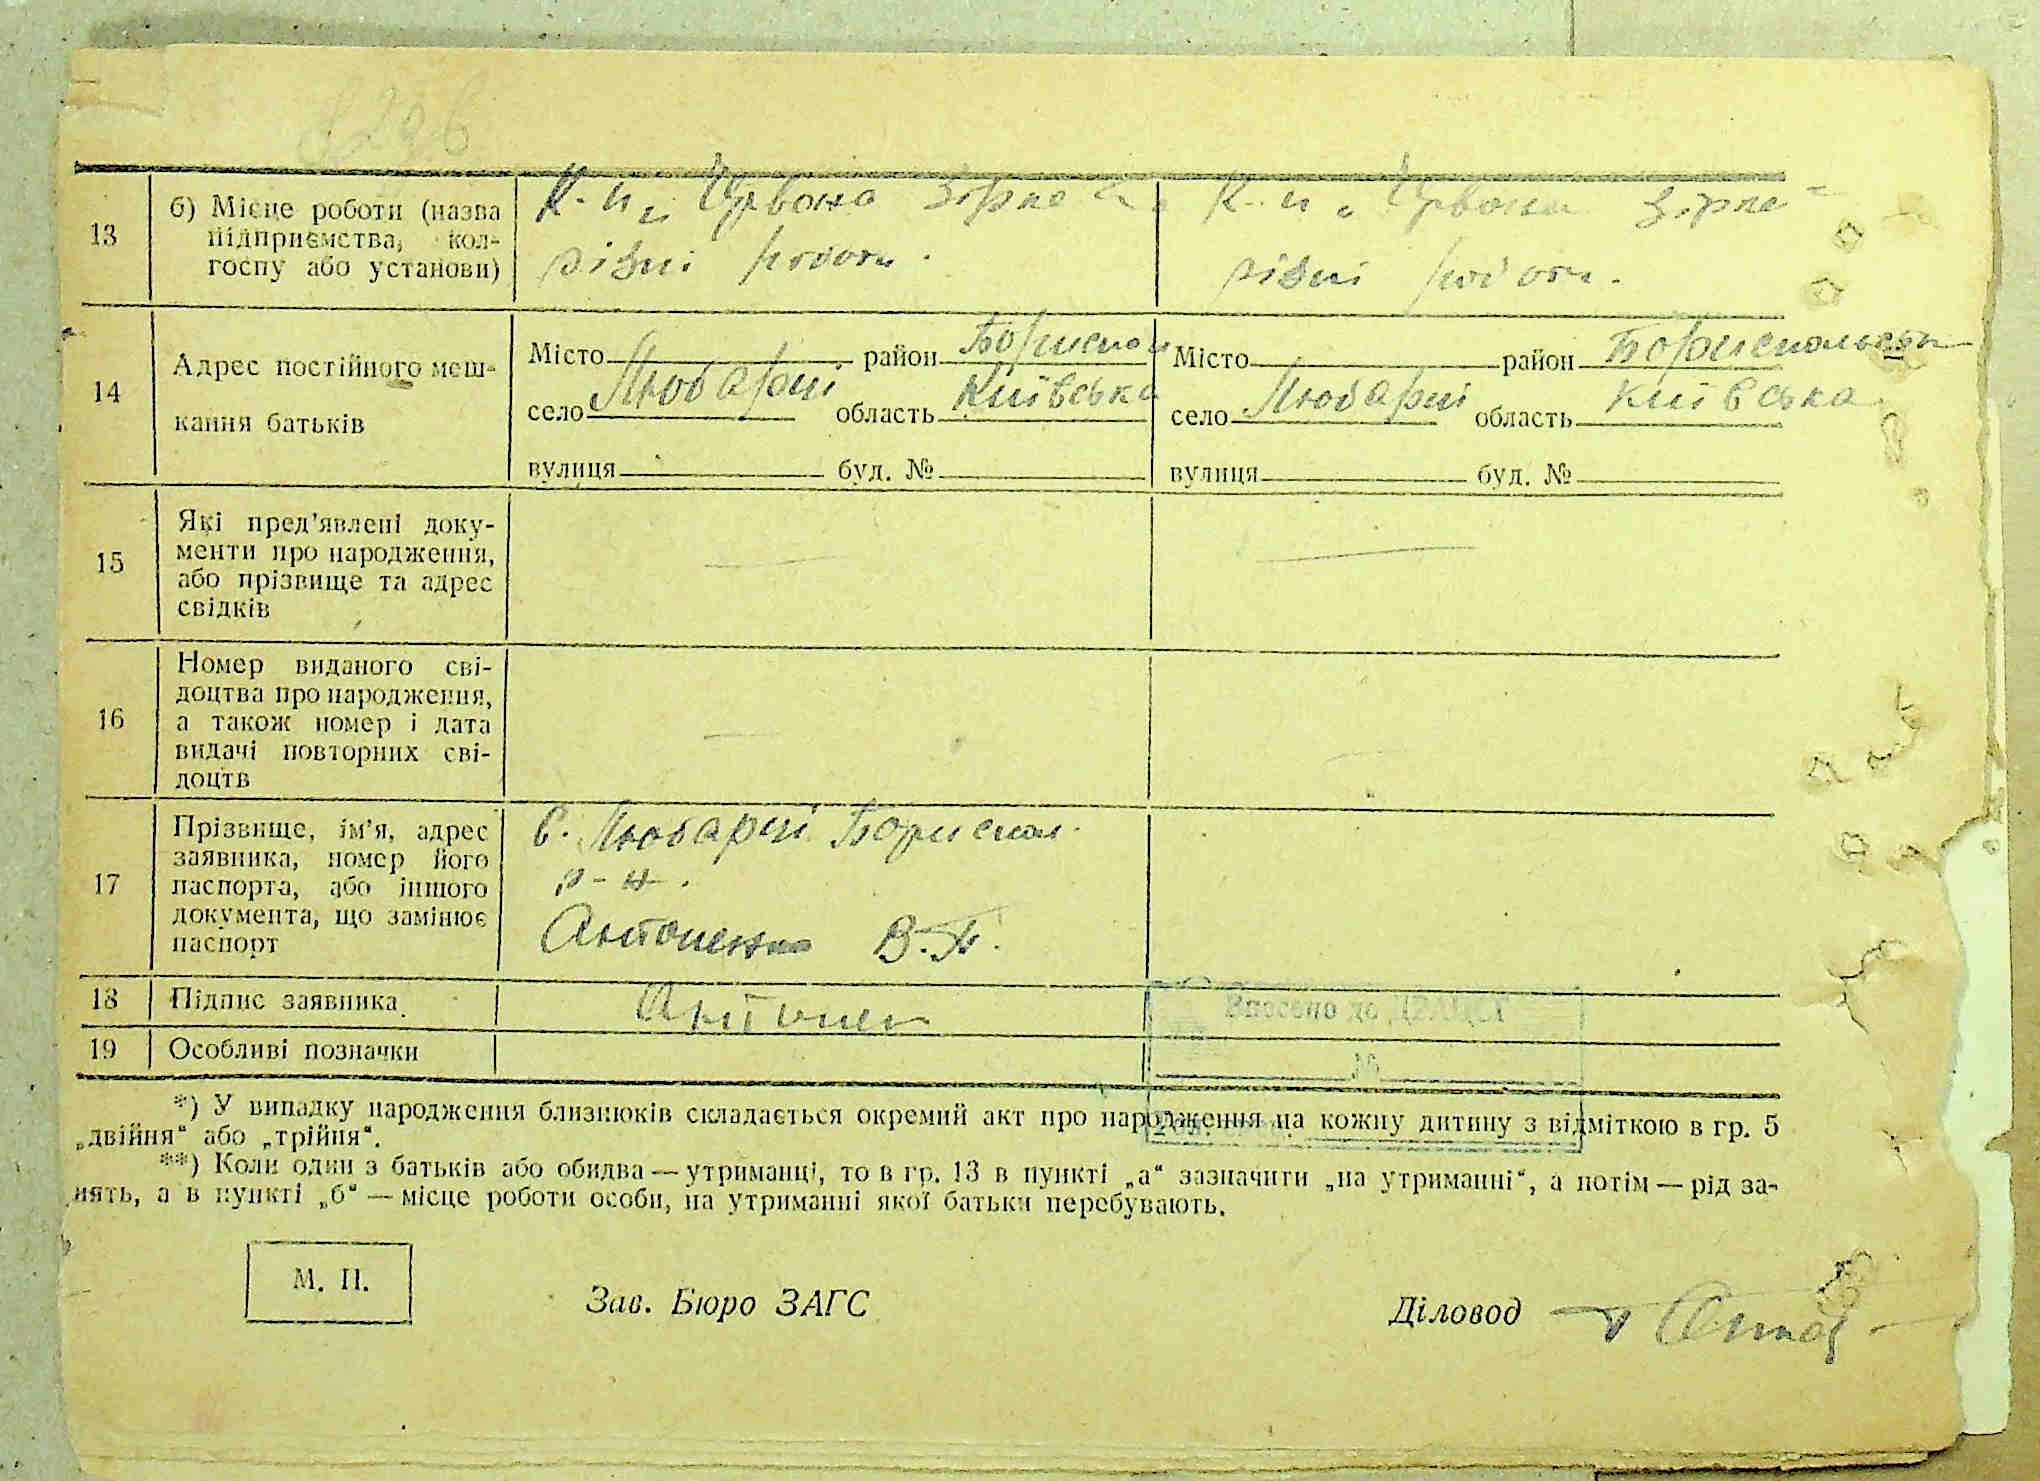 13
б) Місце роботи (назва
підприємства, кол-
госпу або установи)
К-п „Червона зірка"
різні роботи.
К-п „Червона зірка"
різні роботи.
14
Адрес постійного меш-
кання батьків
Місто район Бориспол
село Любарці область Київська
вулиця буд. №
Місто район Бориспольськ
село Любарці область Київська
вулиця буд. №
15
Які пред'явлені доку-
менти про народження,
або прізвище та адрес
свідків
16
Номер виданого сві-
доцтва про народження,
а також номер і дата
видачі повторних сві-
доцтв
17
Прізвище, ім'я, адрес
заявника, номер його
паспорта, або іншого
документа, що замінює
паспорт
с. Любарці Бориспол.
р-н.
Антоненко В.П.
18 Підпис заявника
Антонен
Внесено до ДРАЦСГ
№
19 Особливі позначки
*) У випадку народження близнюків складається окремий акт про народження на кожну дитину з відміткою в гр. 5
„двійня" або „трійня".
**) Коли один з батьків або обидва — утриманці, то в гр. 13 в пункті „а" зазначити „на утриманні", а потім — рід за-
нять, а в пункті „б" — місце роботи особи, на утриманні якої батьки перебувають.
М. П.
Зав. Бюро ЗАГС
Діловод